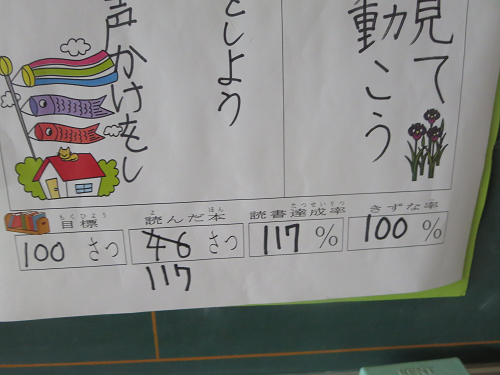 見て
動こう
としよう
声かけをし
もくひょう
目標
100 さつ
よ ほん
読んだ本
46 さつ
117
たっせいりつ
読書達成率
117 %
きずな率
100 %